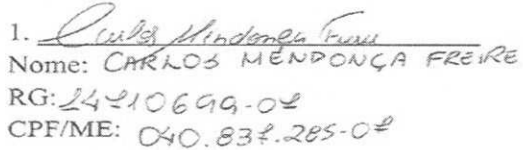 1. Carlos Mendonça Freire
Nome: CARLOS MENDONÇA FREIRE
RG: 14710699-07
CPF/ME: 040.837.285-07